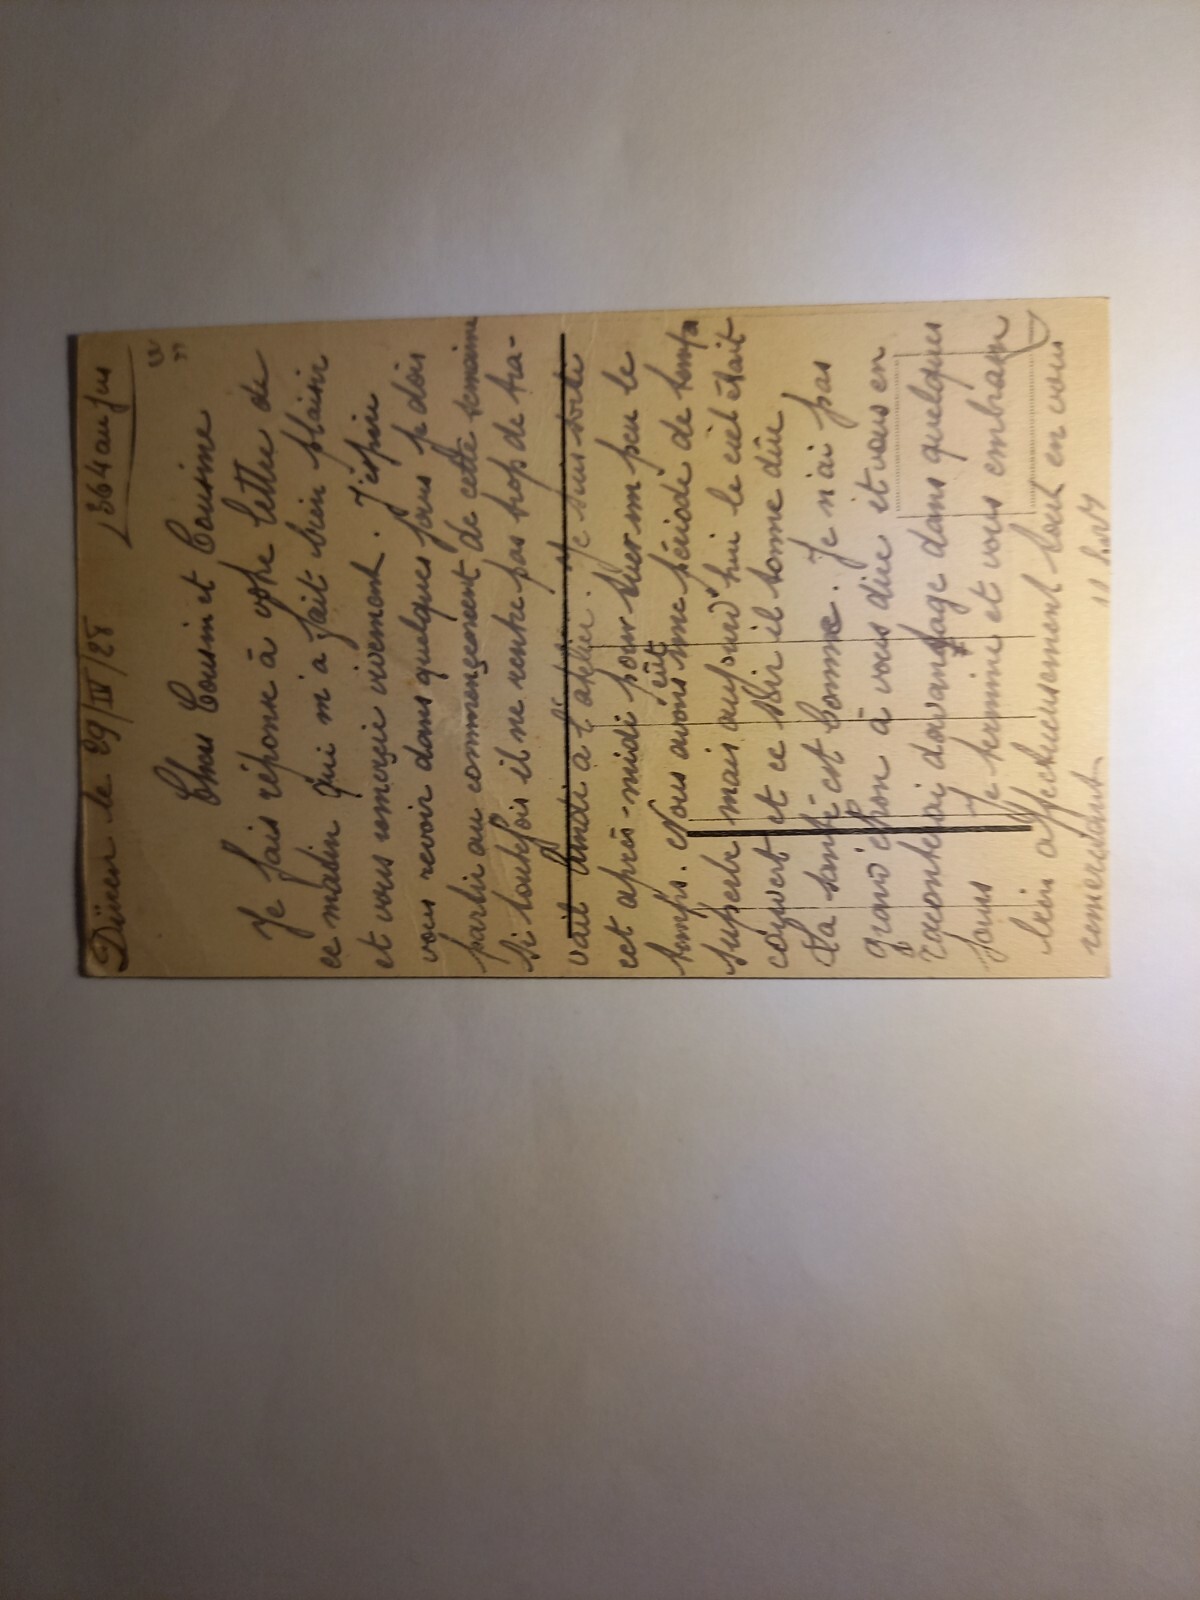 Düren le 29/IV/28 364 au jus
Chers Cousin et Cousine
Je fais réponse à votre lettre de
ce matin qui m'a fait bien plaisir
et vous remercie vivement. J'espère
vous revoir dans quelques jours p dois
partir au commencement de cette semaine
si toutefois il ne rentre pas trop de tra-
vail lundi à l'atelier. Je suis sorti
cet après-midi pour tuer un peu le
temps. Nous avons eût une période de temps
superbe mais aujourd'hui le ciel était
couvert et ce soir il tonne dûr
La santé est bonne. Je n'ai pas
grand'chose à vous dire et vous en
raconterai davantage dans quelques
jours Je termine et vous embrasse
bien affectueusement tout en vous
remerciant